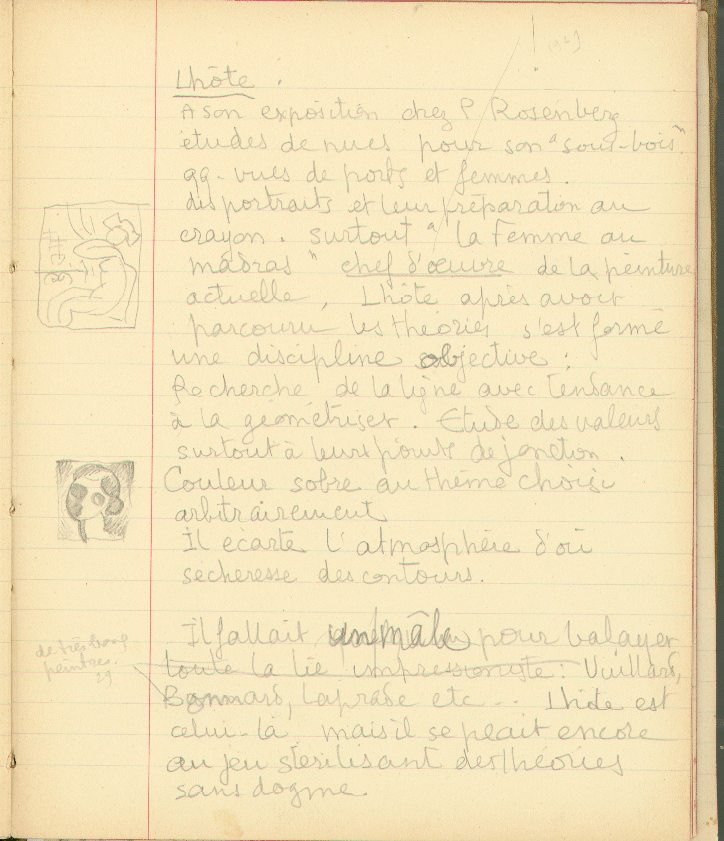 ! 1929
Lhôte.
A son exposition chez P Rosenberg
études de nues pour son "sous-bois"
qq. vues de ports et femmes.
des portraits et leur préparation au
crayon. surtout "la Femme au
madras" chef d'œuvre de la peinture
actuelle, Lhôte après avoir
parcouru les théories s'est formé
une discipline objective:
Recherche de la ligne avec tendance
à la géométriser. Etude des valeurs
surtout à leurs points de jonction.
Couleur sobre au thème choisi
arbitrairement
Il écarte l'atmosphère d'où
sécheresse des contours.
Il fallait un mâle pour balayer
de très bons
peintres.
29
toute la lie impressionniste: Vuillard,
Bonnard, Laprade etc... Lhote est
celui-là mais il se plait encore
au jeu stérilisant des théories
sans dogme.